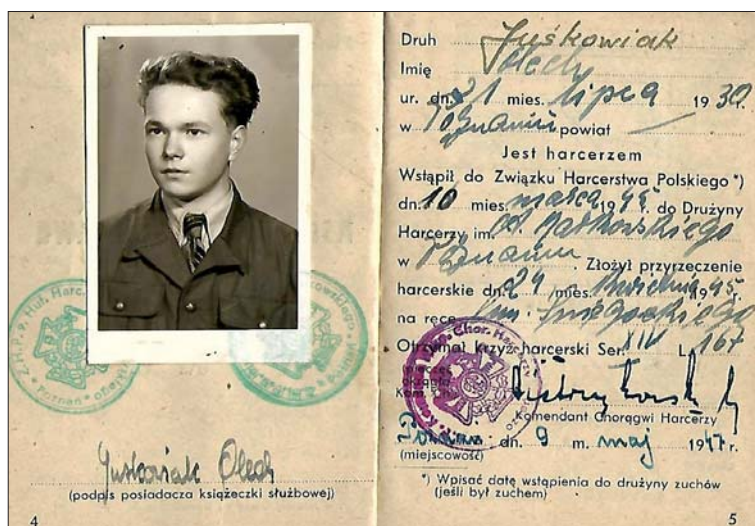 Juśkowiak Olech
(podpis posiadacza książeczki służbowej)
4
Druh Juśkowiak
Imię Olech
ur. dn. 21 mies. lipca 1930.
w Poznaniu powiat —
Jest harcerzem
Wstąpił do Związku Harcerstwa Polskiego *)
dn. 10 mies. marca 1945 r. do Drużyny
Harcerzy im.
w Poznaniu. Złożył przyrzeczenie
harcerskie dn. 24 mies. kwietnia 1945
na ręce
Otrzymał krzyż harcerski Ser. XIV L. 167
Komendant Chorągwi Harcerzy
Poznań dn. 9 m. maj 1947 r.
(miejscowość)
*) Wpisać datę wstąpienia do drużyny zuchów
(jeśli był zuchem)
5